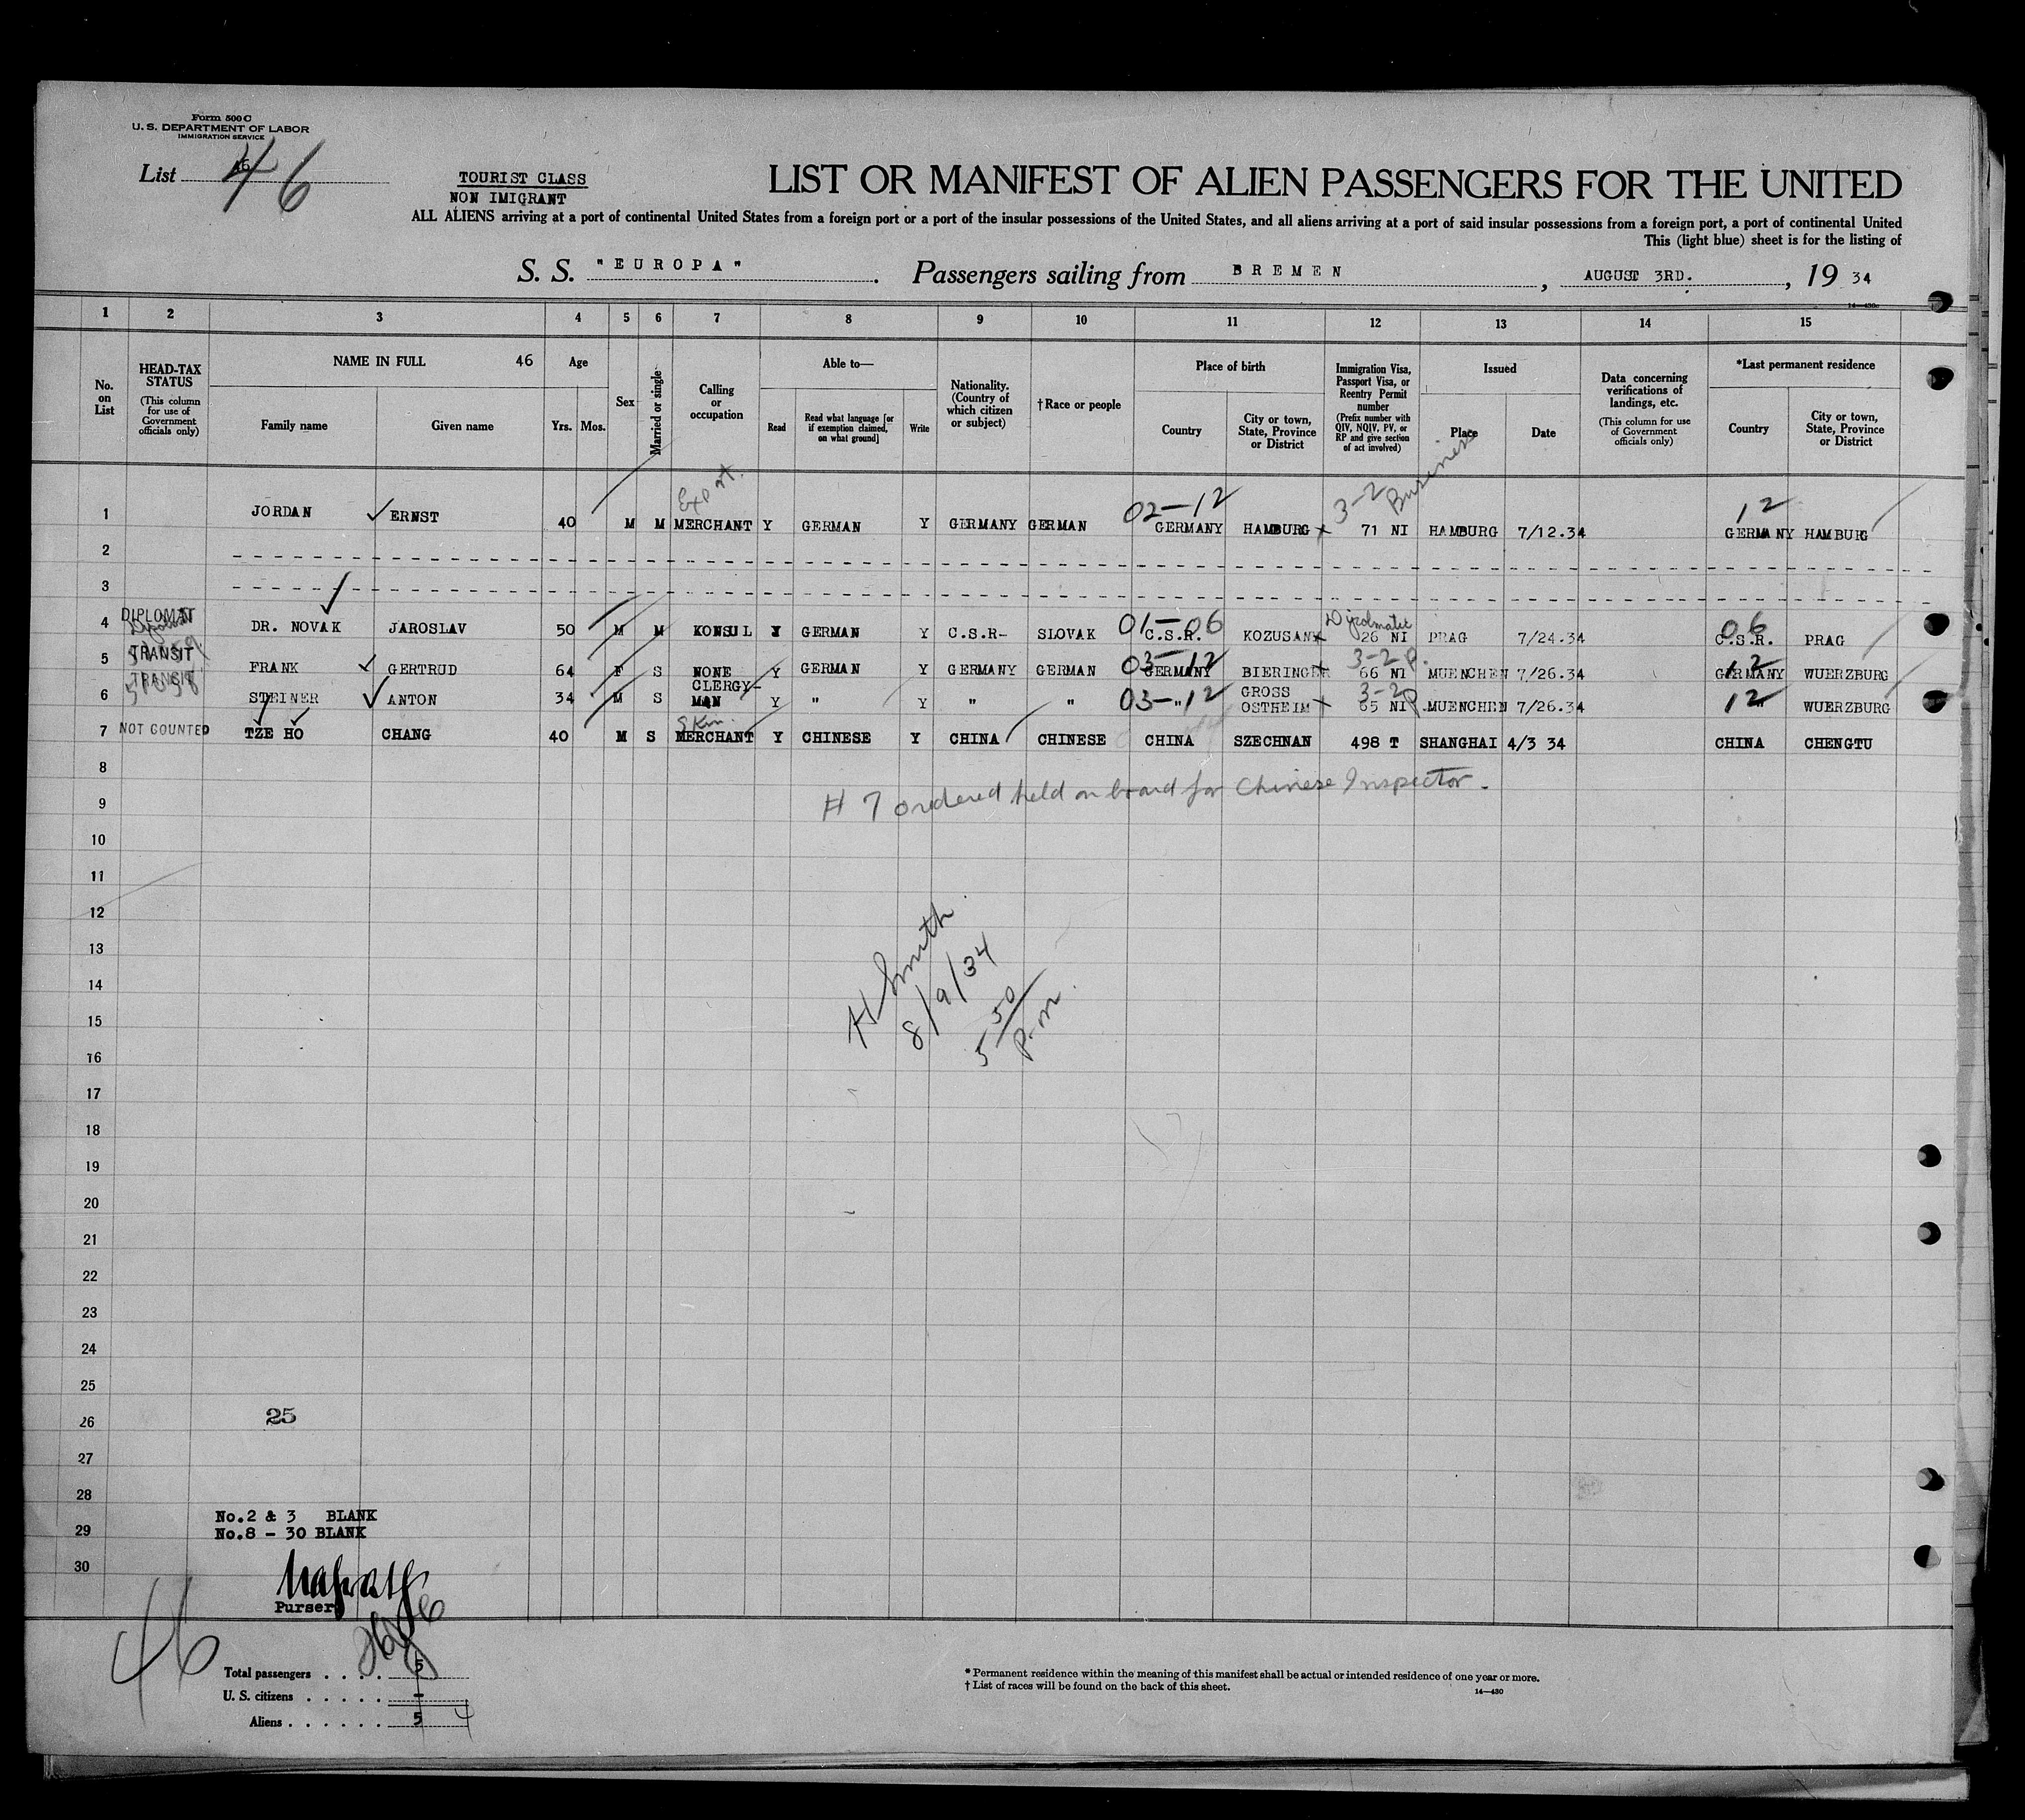 Form 500 C
U. S. DEPARTMENT OF LABOR
IMMIGRATION SERVICE
List 46 46
TOURIST CLASS
NON IMIGRANT
LIST OR MANIFEST OF ALIEN PASSENGERS FOR THE UNITED
ALL ALIENS arriving at a port of continental United States from a foreign port or a port of the insular possessions of the United States, and all aliens arriving at a port of said insular possessions from a foreign port, a port of continental United
This (light blue) sheet is for the listing of
S. S. "EUROPA". Passengers sailing from BREMEN, AUGUST 3RD., 19 34
14-430
1 2 3 4 5 6 7 8 9 10 11 12 13 14 15
No. on List
HEAD-TAX STATUS (This column for use of Government officials only)
NAME IN FULL 46
Family name
Given name
Age
Yrs. Mos.
Sex
Married or single
Calling or occupation
Able to—
Read
Read what language [or if exemption claimed, on what ground]
Write
Nationality. (Country of which citizen or subject)
†Race or people
Place of birth
Country
City or town, State, Province or District
Immigration Visa, Passport Visa, or Reentry Permit number (Prefix number with QIV, NQIV, PV, or RP and give section of act involved)
Issued
Place
Date
Data concerning verifications of landings, etc. (This column for use of Government officials only)
*Last permanent residence
Country
City or town, State, Province or District
Export. 02-12 3-2 Business 12
1 JORDAN ERNST 40 M M MERCHANT Y GERMAN Y GERMANY GERMAN GERMANY HAMBURG 71 NI HAMBURG 7/12.34 GERMANY HAMBURG
2
3
DIPLOMAT 01-06 Diplomatic 06
4 DR. NOVAK JAROSLAV 50 M M KONSUL Y GERMAN Y C.S.R- SLOVAK C.S.R. KOZUSAN 26 NI PRAG 7/24.34 C.S.R. PRAG
TRANSIT 03-12 3-2 P. 12
5 FRANK GERTRUD 64 F S NONE Y GERMAN Y GERMANY GERMAN GERMANY BIERINGER 66 NI MUENCHEN 7/26.34 GERMANY WUERZBURG
TRANSIT 03-12 3-2 P. 12
6 STEINER ANTON 34 M S CLERGY-MAN Y " Y " " " GROSS OSTHEIM 65 NI MUENCHEN 7/26.34 " WUERZBURG
7 NOT COUNTED TZE HO CHANG 40 M S MERCHANT Y CHINESE Y CHINA CHINESE CHINA SZECHNAN 498 T SHANGHAI 4/3 34 CHINA CHENGTU
8
# 7 ordered held on board for Chinese Inspector.
9
10
11
12
13
H Smith
8/9/34
5 50 p.m.
14
15
16
17
18
19
20
21
22
23
24
25
26 25
27
28
No.2 & 3 BLANK
29 No.8 - 30 BLANK
30
Purser
46
Total passengers . . . . 5
U. S. citizens . . . . . -
Aliens . . . . . . 5 4
* Permanent residence within the meaning of this manifest shall be actual or intended residence of one year or more.
† List of races will be found on the back of this sheet.
14—430